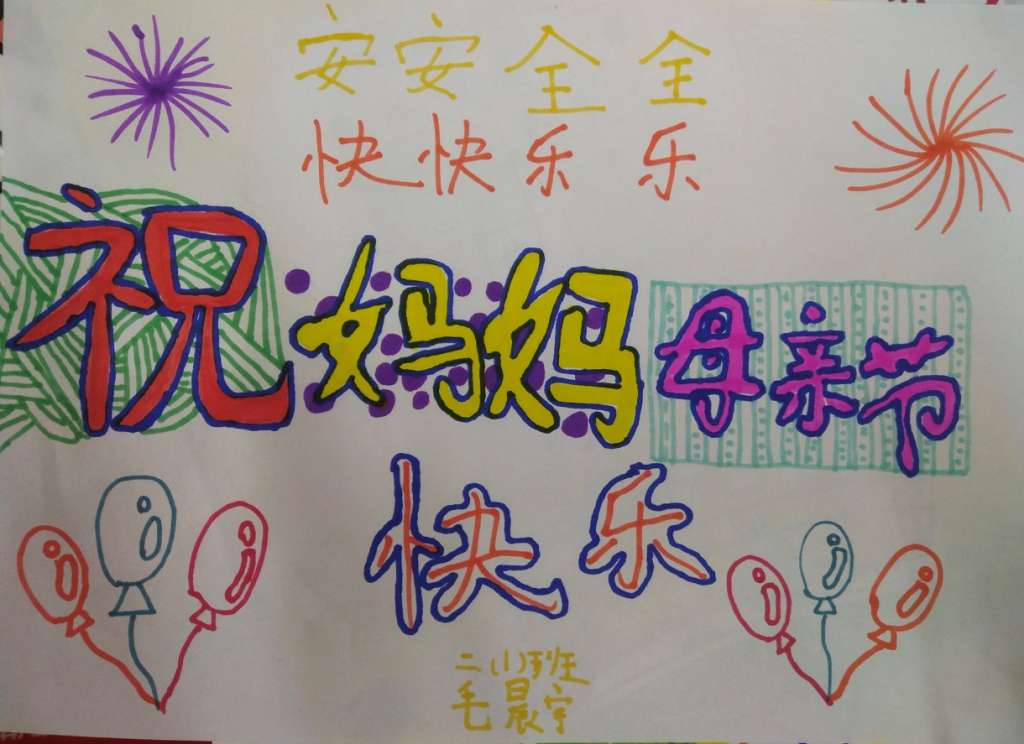 安安全全
快快乐乐
祝妈妈母亲节
快乐
二(1)班
毛晨宇